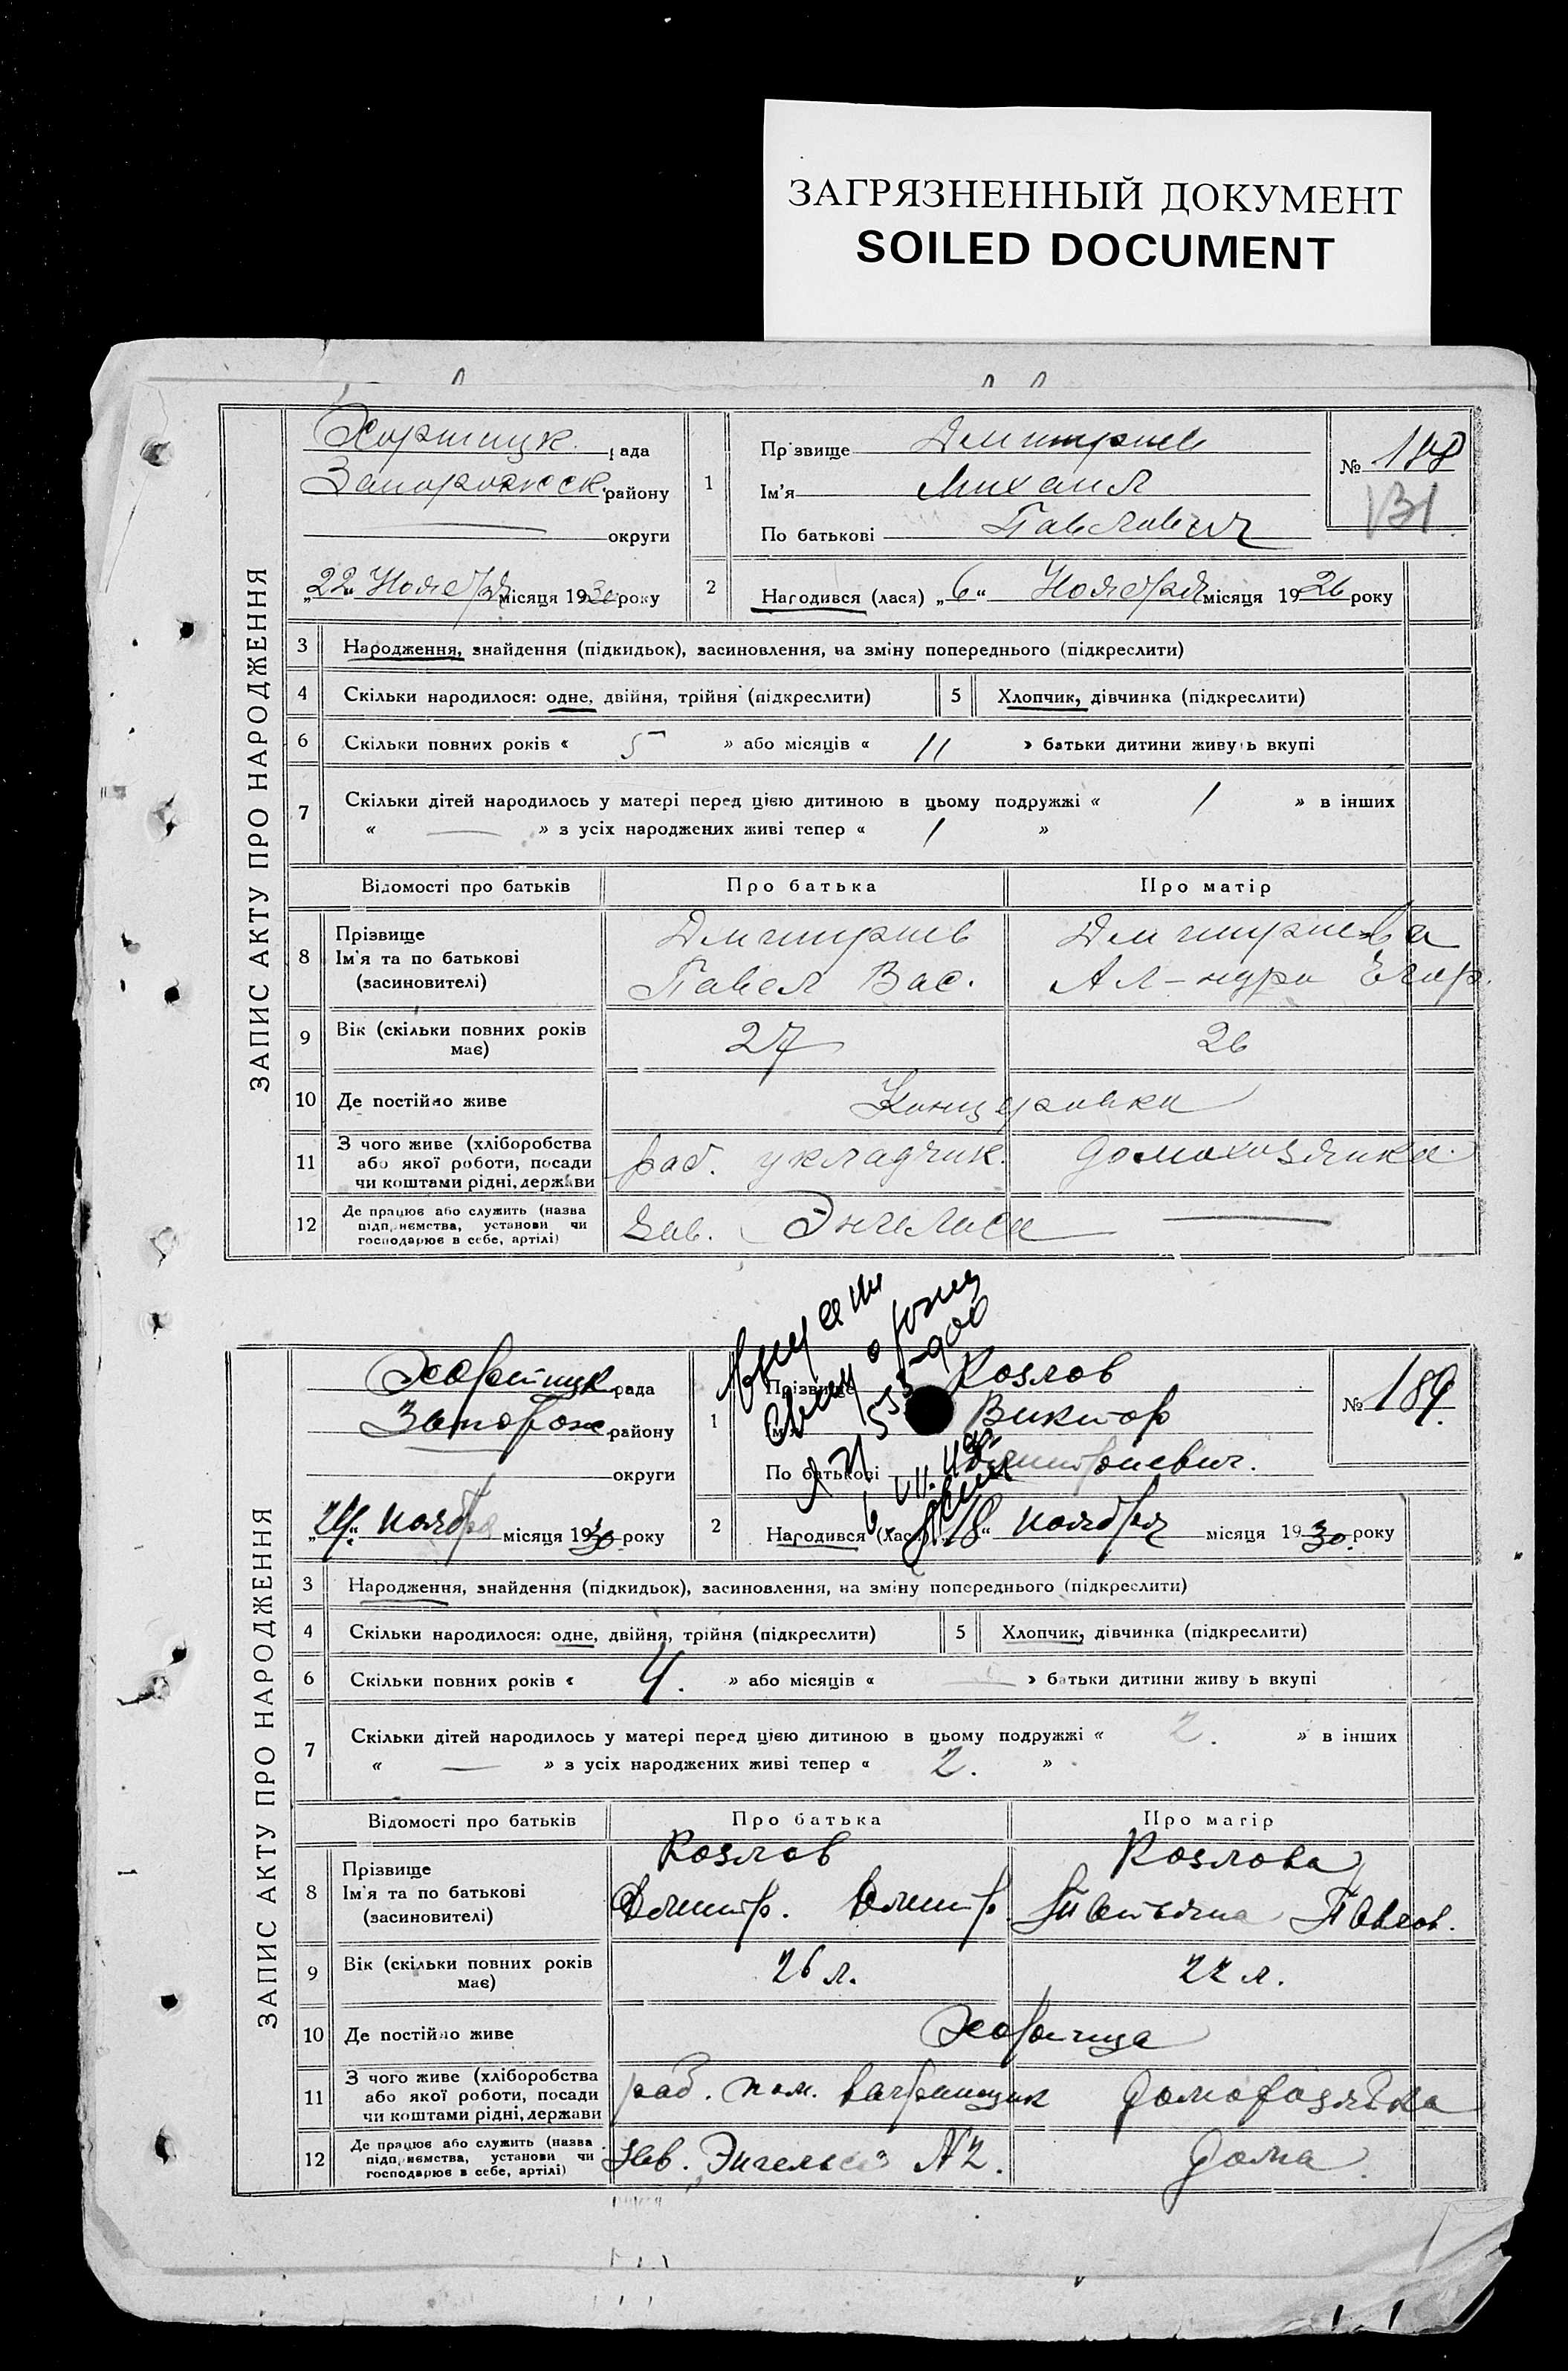 ЗАГРЯЗНЕННЫЙ ДОКУМЕНТ
SOILED DOCUMENT
ЗАПИС АКТУ ПРО НАРОДЖЕННЯ
Хортицк. рада
Запорожск. району
округи
„22“ Ноября місяця 1930 року
1
Прізвище Дмитриев
Ім'я Михаил
По батькові Павлович
№ 188
131
2 Народився (лася) „6“ Ноября місяця 1926 року
3 Народження, знайдення (підкидьок), засиновлення, на зміну попереднього (підкреслити)
4 Скільки народилося: одне, двійня, трійня (підкреслити) 5 Хлопчик, дівчинка (підкреслити)
6 Скільки повних років « 5 » або місяців « 11 » батьки дитини живуть вкупі
7 Скільки дітей народилось у матері перед цією дитиною в цьому подружжі « 1 » в інших
« — » з усіх народжених живі тепер « 1 »
Відомості про батьків Про батька Про матір
8 Прізвище Дмитриев Дмитриева
Ім'я та по батькові Павел Вас. Ал-ндра Егор.
(засиновителі)
9 Вік (скільки повних років має) 27 26
10 Де постійно живе Канцеровка
11 З чого живе (хліборобства або якої роботи, посади чи коштами рідні, держави раб. укладчик. домохозяйка.
12 Де працює або служить (назва підприємства, установи чи господарює в себе, артілі) Зав. Энгельса —
ЗАПИС АКТУ ПРО НАРОДЖЕННЯ
Хортицк рада
Запорож району
округи
„24“ ноября місяця 1930 року
1
Прізвище Козлов
Ім'я Виктор
По батькові Дмитриевич.
№ 189.
2 Народився (лася) „18“ ноября місяця 1930. року
3 Народження, знайдення (підкидьок), засиновлення, на зміну попереднього (підкреслити)
4 Скільки народилося: одне, двійня, трійня (підкреслити) 5 Хлопчик, дівчинка (підкреслити)
6 Скільки повних років « 4. » або місяців « — » батьки дитини живуть вкупі
7 Скільки дітей народилось у матері перед цією дитиною в цьому подружжі « 2. » в інших
« — » з усіх народжених живі тепер « 2. »
Відомості про батьків Про батька Про матір
8 Прізвище Козлов Козлова
Ім'я та по батькові Дмитр. Дмитр Татьяна Павлов.
(засиновителі)
9 Вік (скільки повних років має) 26 л. 22 л.
10 Де постійно живе Хортица
11 З чого живе (хліборобства або якої роботи, посади чи коштами рідні, держави раб. пом. вагранщик домохозяйка
12 Де працює або служить (назва підприємства, установи чи господарює в себе, артілі) Зав. Энгельса №2. дома